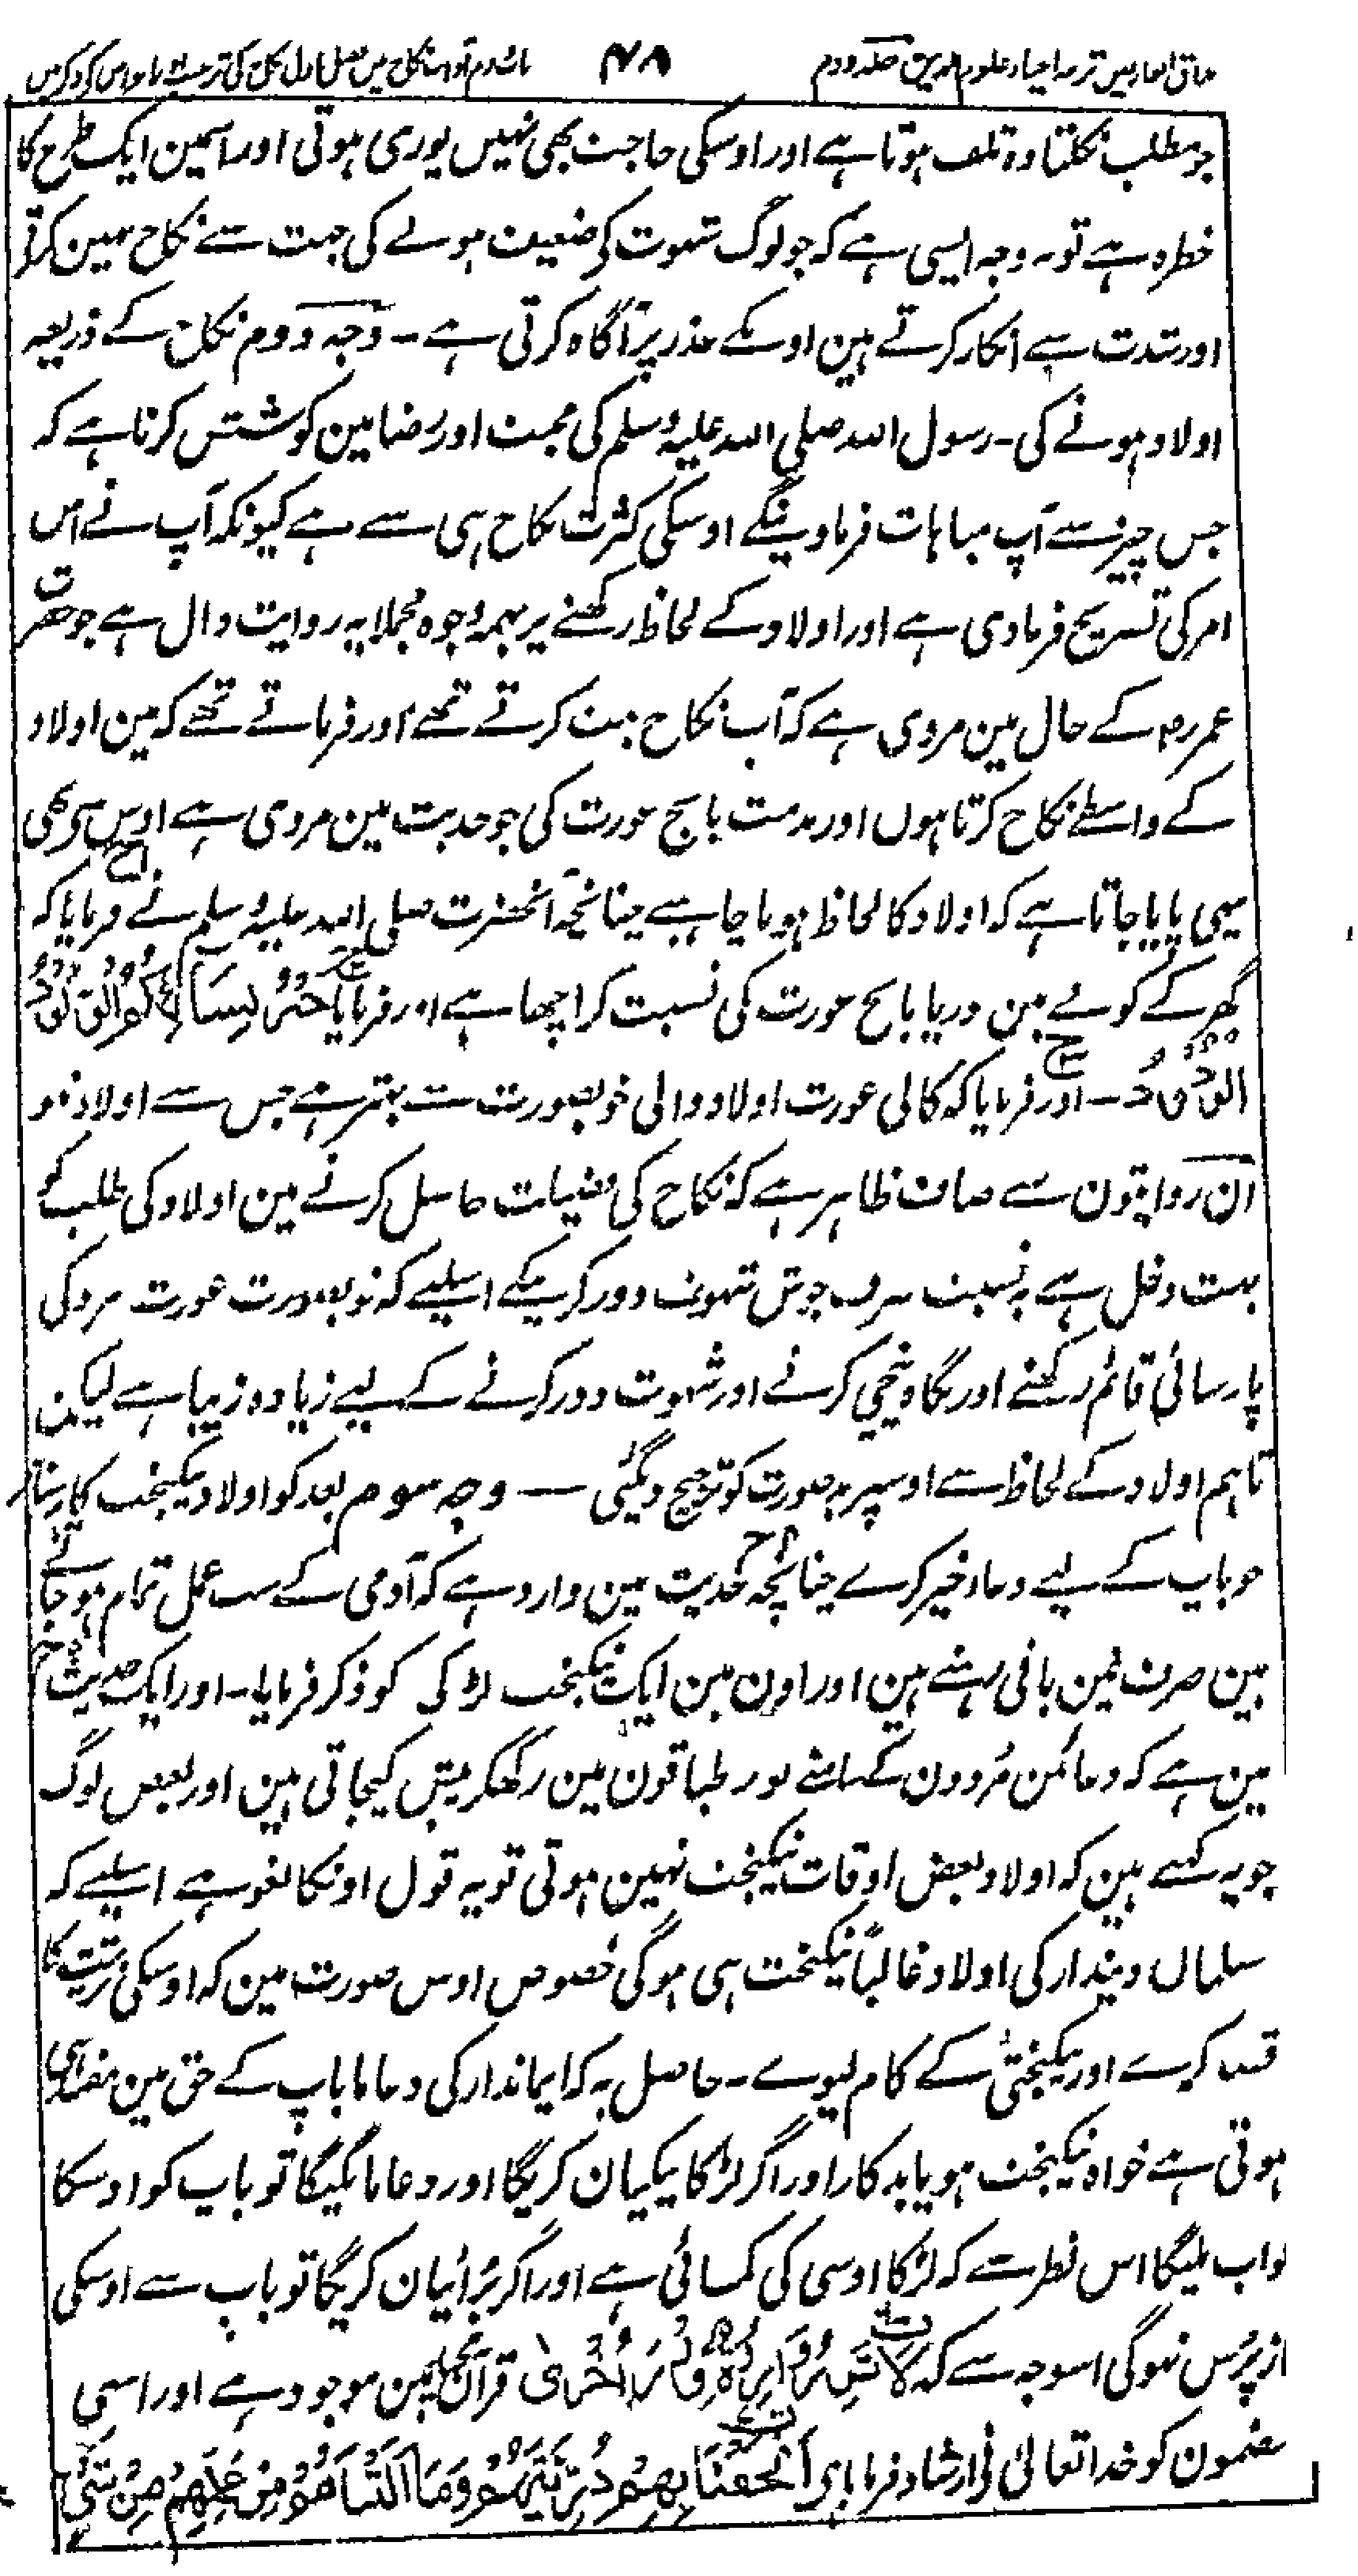 مذاق العارفین ترجمہ احیاء علوم الدین جلد دوم ۴۸ باب دوم آداب نکاح میں فصل اول نکاح کی
جو مطلب نکلتا وہ تلف ہوتا ہے اور اوسکی حاجت بھی نہیں پوری ہوتی اور اسمین ایک طرح کا
خطرہ ہے تو یہ وجہ ایسی ہے کہ جو لوگ شہوت کی ضعیف ہونے کی جہت سے نکاح نہین کرتے
اور شدت سے انکار کرتے ہین اوسکے عذر پر آگاہ کرتی ہے ۔ وجہ دوم نکاح کے ذریعہ
اولاد ہونے کی ۔ رسول اللہ صلی اللہ علیہ وسلم کی محبت اور رضا مین کوشش کرنا ہے کہ
جس چیز سے آپ مباہات فرماوینگے اوسکی کثرت نکاح ہی سے ہے کیونکہ آپ نے اس
امر کی تصریح فرمادی ہے اور اولاد کے لحاظ رکھنے پر بہمہ وجوہ مجملا یہ روایت دال ہے جو حضرت
عمر رض کے حال مین مروی ہے کہ آپ نکاح بہت کرتے تھے اور فرماتے تھے کہ مین اولاد
کے واسطے نکاح کرتا ہوں اور مذمت بانجھ عورت کی جو حدیث مین مروی ہے اوس سے بھی
یہی پایا جاتا ہے کہ اولاد کا لحاظ ہونا چاہیے چنانچہ آنحضرت صلی اللہ علیہ وسلم نے فرمایا کہ
گھر کے کونے مین بوریا بانجھ عورت کی نسبت کر اچھا ہے اور فرمایا خَیْرُ نِسَائِکُمُ الْوَلُوْدُ
الْوَدُوْدُ ۔ اور فرمایا کہ کالی عورت اولاد والی خوبصورت سے بہتر ہے جس سے اولاد نہو
ان روایتون سے صاف ظاہر ہے کہ نکاح کی فضیلت حاصل کرنے مین اولاد کی طلب کو
بہت دخل ہے بہ نسبت صرف جوش شہوت دور کرنیکے اسلیے کہ خوبصورت عورت مرد کی
پارسائی قائم رکھنے اور نگاہ نیچی کرنے اور شہوت دور کرنے کے لیے زیادہ زیبا ہے لیکن
تاہم اولاد کے لحاظ سے اوسپر بدصورت کو ترجیح دیگئی — وجہ سوم بعد کو اولاد نیکبخت کا رہنا
جو باپ کے لیے دعاء خیر کرے چنانچہ حدیث مین وارد ہے کہ آدمی کے سب عمل تمام ہو جاتے
ہین صرف تین باقی رہتے ہین اور اون مین ایک نیکبخت لڑکی کو ذکر فرمایا ۔ اور ایک حدیث
مین ہے کہ دعائین مُردون کے سامنے نور طباقون مین رکھکر پیش کیجاتی ہین اور بعض لوگ
جو یہ کہتے ہین کہ اولاد بعض اوقات نیکبخت نہین ہوتی تو یہ قول اونکا لغو ہے اسلیے کہ
مسلمان دیندار کی اولاد غالباً نیکبخت ہی ہوگی خصوص اوس صورت مین کہ اوسکی تربیت کا
قصد کرے اور نیکبختی کے کام لیوے ۔ حاصل یہ کہ ایماندار کی دعا ما باپ کے حق مین مفید ہی
ہوتی ہے خواہ نیکبخت ہو یا بدکار اور اگر لڑکا نیکیان کریگا اور دعا مانگیگا تو باپ کو اوسکا
ثواب ملیگا اس نظر سے کہ لڑکا اوسی کی کمائی ہے اور اگر بُرائیان کریگا تو باپ سے اوسکی
بازپُرس نہوگی اسوجہ سے کہ لَا تَزِرُ وَازِرَۃٌ وِّزْرَ اُخْرٰی قرآن مجید مین موجود ہے اور اسی
مضمون کو خدا تعالی نے ارشاد فرمایا ہی اَلْحَقْنَا بِہِمْ ذُرِّیَّتَہُمْ وَمَا اَلَتْنَاہُمْ مِنْ عَمَلِہِمْ مِنْ شَیْءٍ